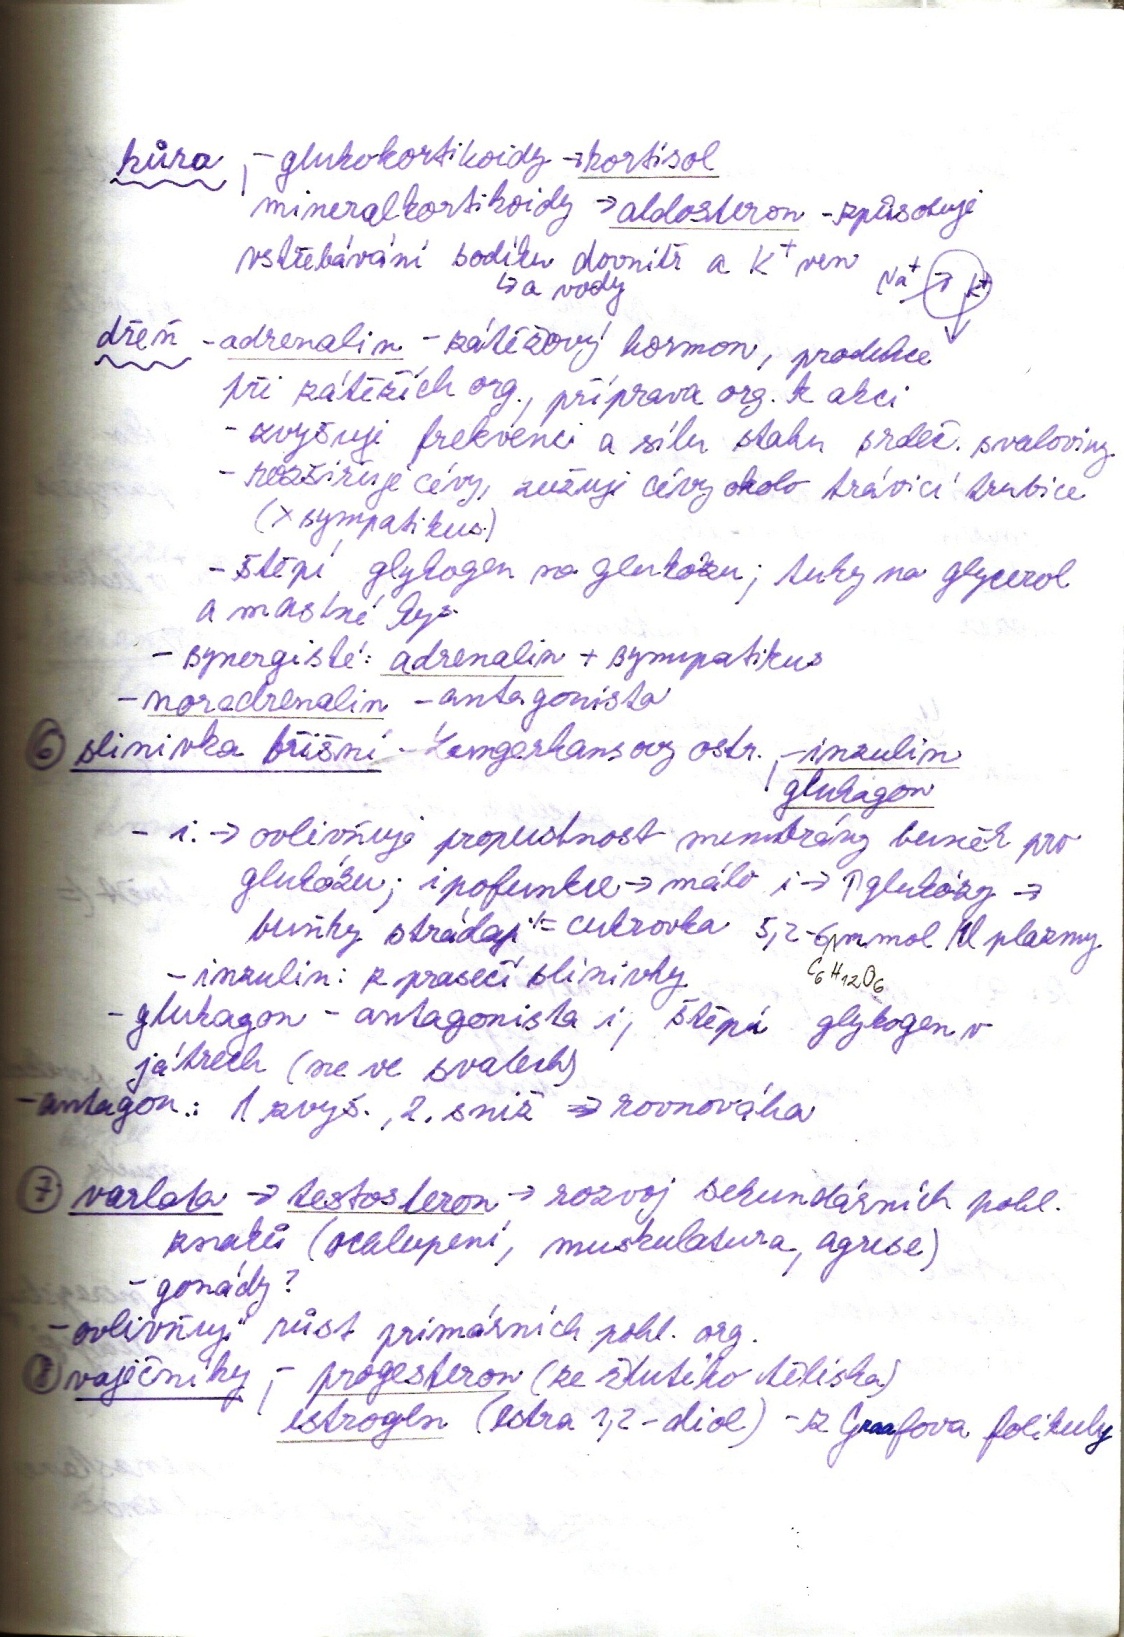 kůra - glukokortikoidy → kortisol
mineralkortikoidy → aldosteron - způsobuje
vstřebávání sodíku dovnitř a K⁺ ven Na⁺ → K⁺
↳ a vody
dřeň - adrenalin - zátěžový hormon, produkce
při zátěžích org., příprava org. k akci
- zvyšuje frekvenci a sílu stahu srdeč. svaloviny
- rozšiřuje cévy, zužuje cévy okolo trávicí trubice
(× sympatikus)
- štěpí glykogen na glukózu; tuky na glycerol
a mastné kys.
- synergisté: adrenalin + sympatikus
- noradrenalin - antagonista
⑥ slinivka břišní - Langerhansovy ostr. - inzulin
glukagon
- i. → ovlivňuje propustnost membrány buněk pro
glukózu; ipofunkce → málo i → ↑ glukózy →
buňky strádají = cukrovka 5,2-6 mmol /1l plazmy
C₆H₁₂O₆
- inzulin: z prasečí slinivky
- glukagon - antagonista i, štěpí glykogen v
játrech (ne ve svalech)
- antagon.: 1. zvyš., 2. sniž ⇒ rovnováha
⑦ varlata → testosteron → rozvoj sekundárních pohl.
znaků (ochlupení, muskulatura, agrese)
- gonády?
- ovlivňují růst primárních pohl. org.
⑧ vaječníky - progesteron (ze žlutého tělíska)
estrogen (estra 1,2-diol) - z Graafova folikuly